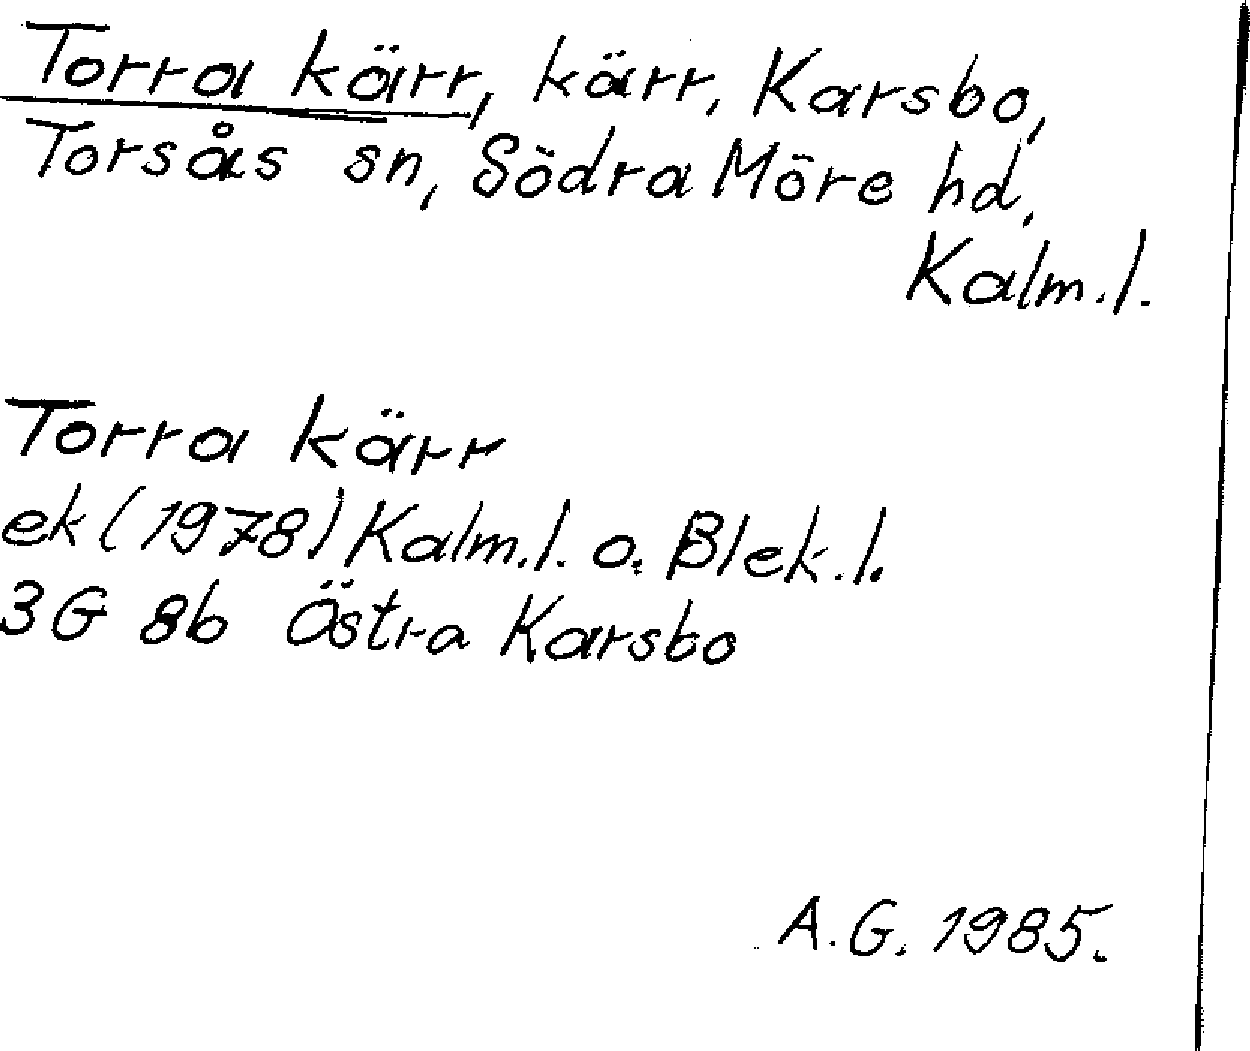 Torra kärr, kärr, Karsbo,
Torsås sn, Södra Möre hd,
Kalm.l.
Torra kärr
ek (1978) Kalm.l. o. Blek.l.
3G 8b Östra Karsbo
A.G. 1985.